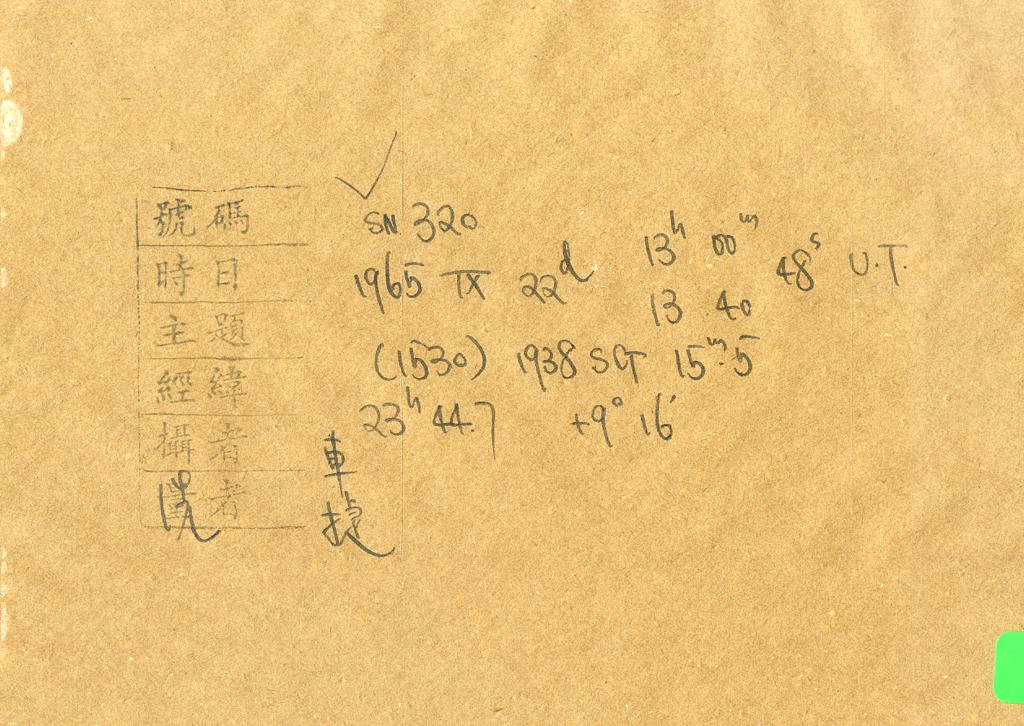 號碼 SN 320
時日 1965 IX 22ᵈ 13ʰ 00ᵐ 48ˢ U.T.
13 40
主題 (1530) 1938 SG 15ᵐ.5
經緯 23ʰ 44.7 +9° 16'
攝者 車
洗者 捷